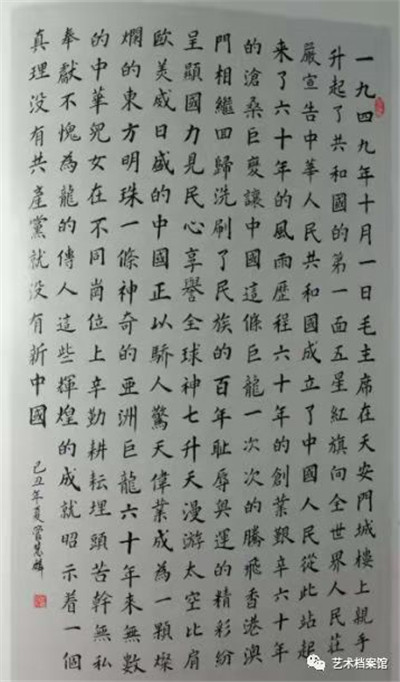 一九四九年十月一日毛主席在天安門城樓上親手
升起了共和國的第一面五星紅旗向全世界人民莊
嚴宣告中華人民共和國成立了中國人民從此站起
來了六十年的風雨歷程六十年的創業艱辛六十年
的滄桑巨變讓中國這條巨龍一次次的騰飛香港澳
門相繼回歸洗刷了民族的百年耻辱奧運的精彩紛
呈顯國力見民心享譽全球神七升天漫游太空比肩
歐美威日盛的中國正以驕人驚天偉業成為一顆燦
爛的東方明珠一條神奇的亚洲巨龍六十年來無數
的中華兒女在不同崗位上辛勤耕耘埋頭苦幹無私
奉獻不愧為龍的傳人這些輝煌的成就昭示着一個
真理没有共產黨就没有新中國
己丑年夏管慧
艺术档案馆